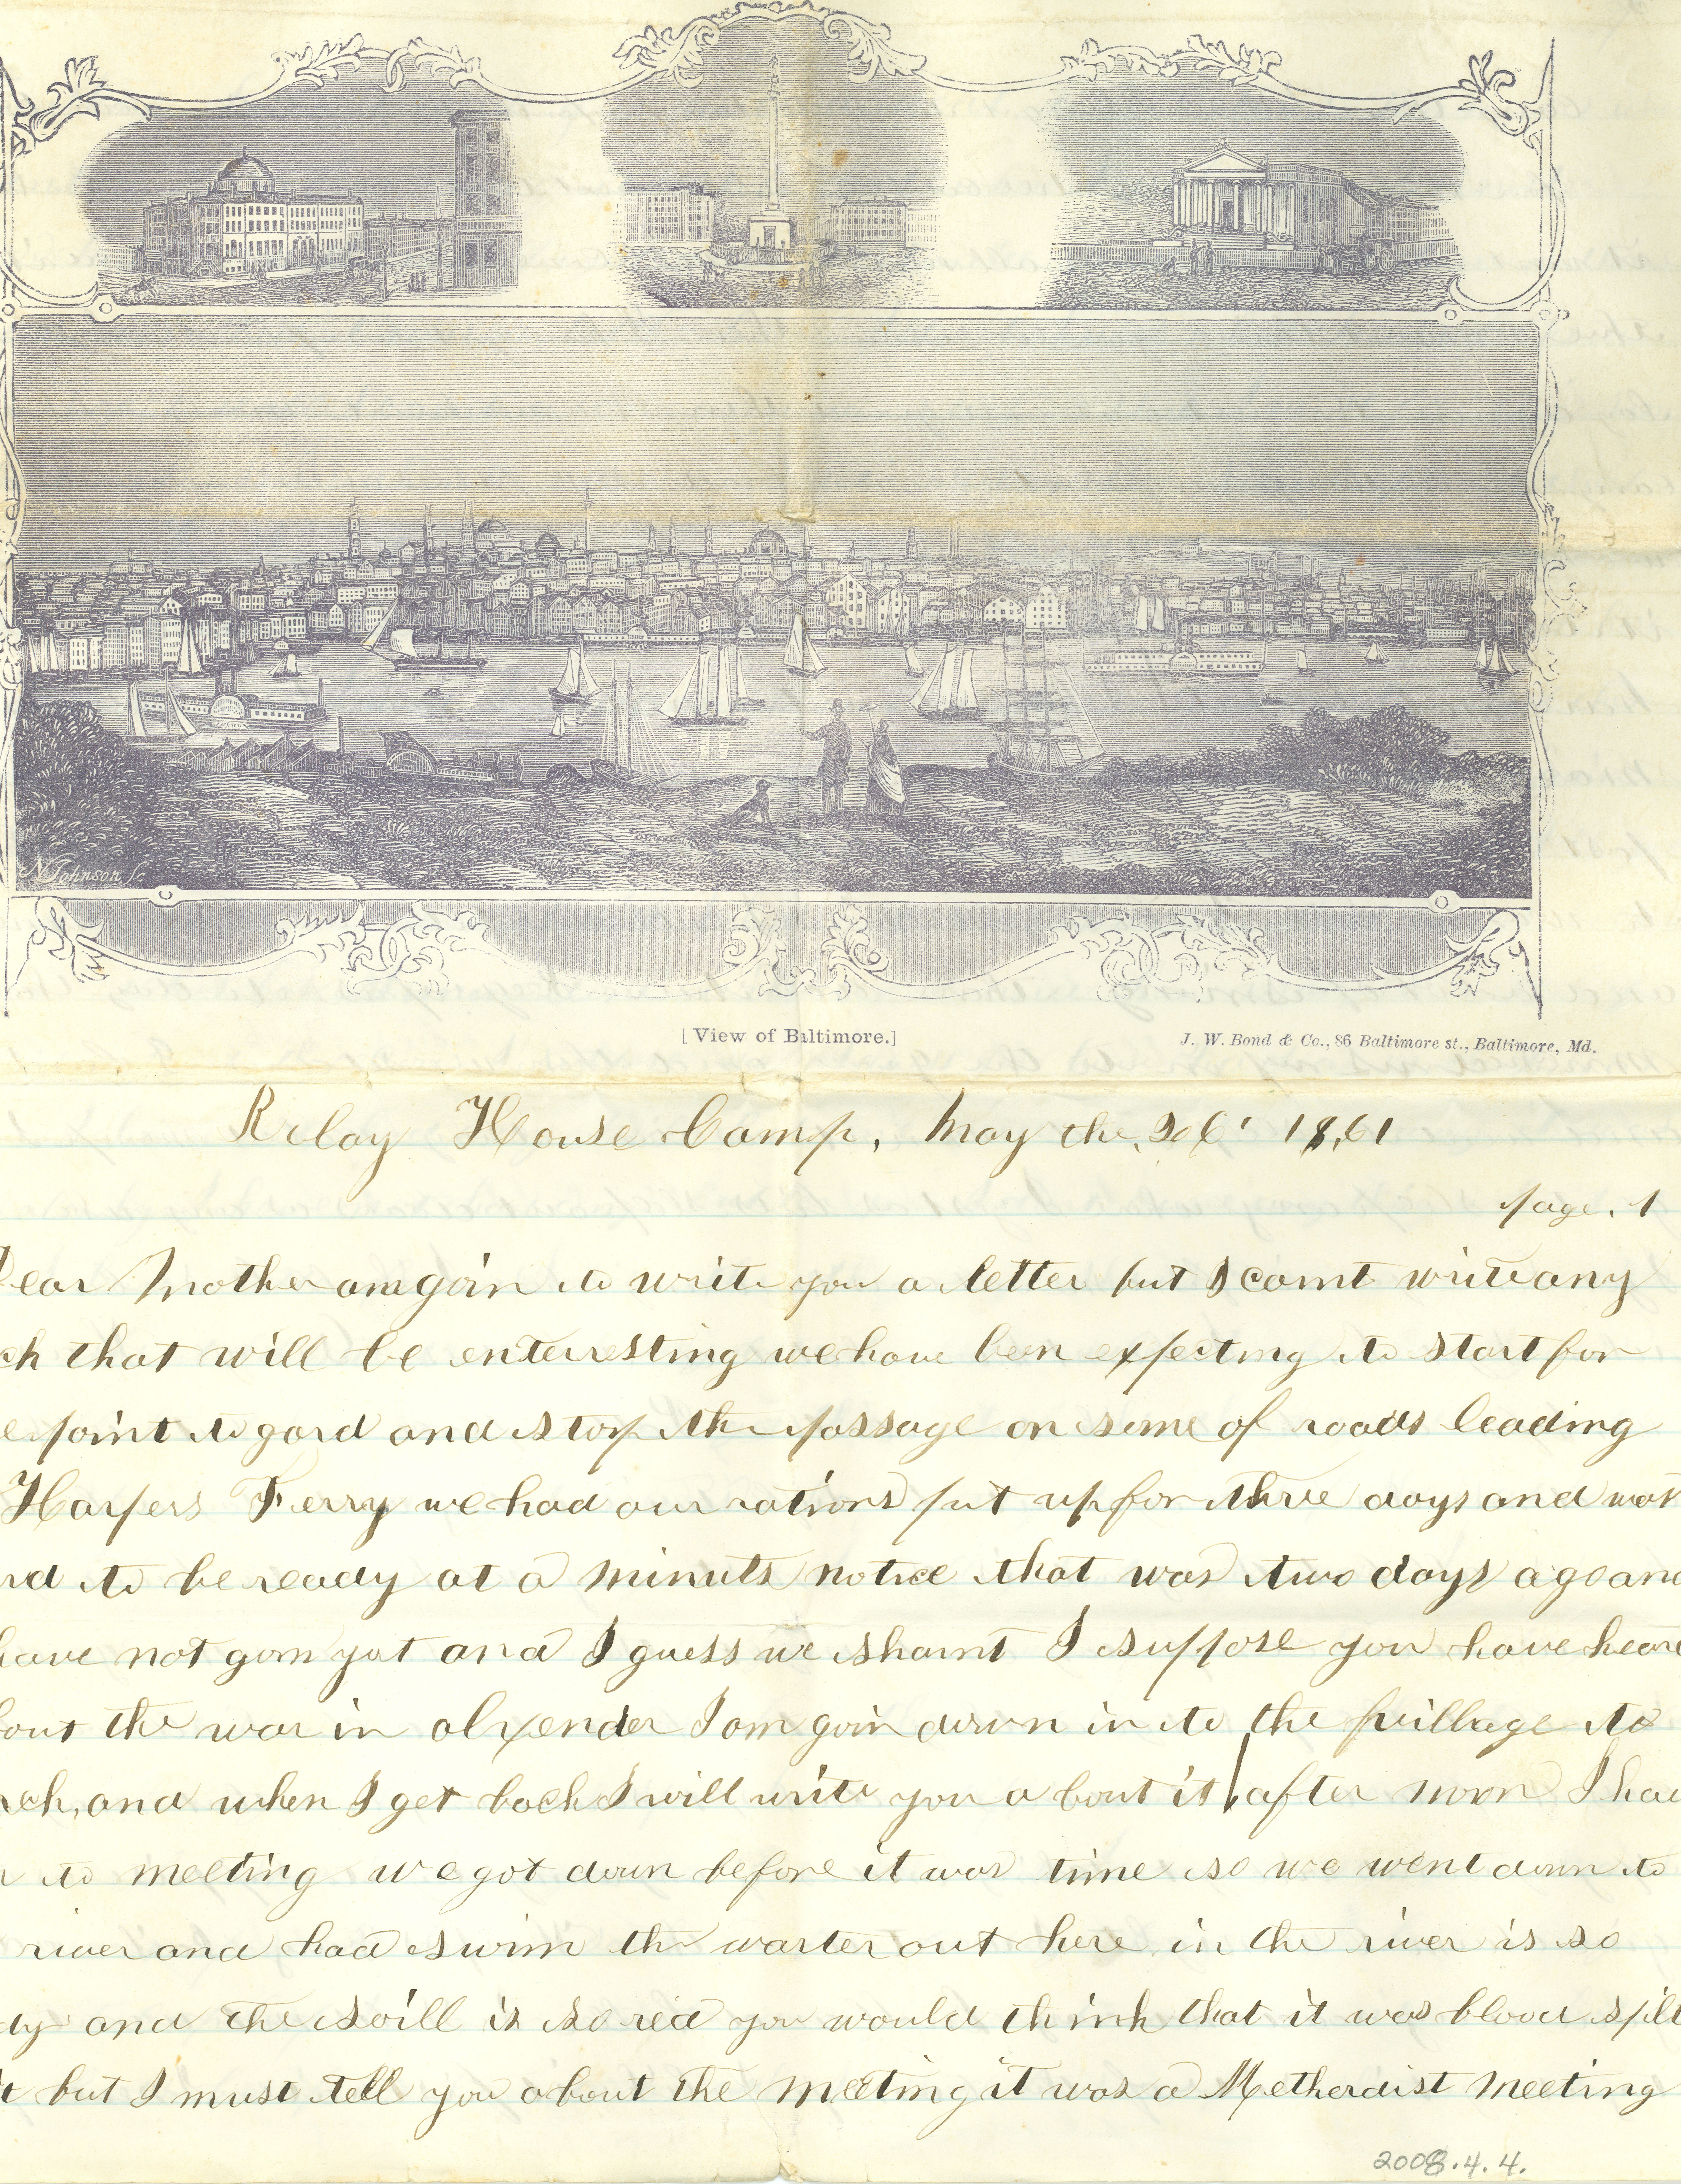 N Johnson Sc
[ View of Baltimore.]
J. W. Bond & Co., 86 Baltimore st., Baltimore, Md.
Relay House Camp, May the, 1861
page. 1
ear Mother am goin to write you a letter but I caint write any
ch that will be enterresting we have been expecting to start for
e point to gard and stop the passage on some of roads leading
Harpers Ferry we had our rations put up for three days and was
rd to be ready at a minuts notice that was two days ago and
have not gorn yat and I guess we shaint I suppose you have heare
bout the war in alxender I am goin down in to the village to
rch, and when I get back I will write you a bout it after noon I hav
n to meeting we got down before it was time so we went down to
river and had swim the warter out here in the river is so
dy and the soill is so red you would think that it was blood spilt
it but I must tell you about the meeting it was a Metherdist meeting
2008.4.4.